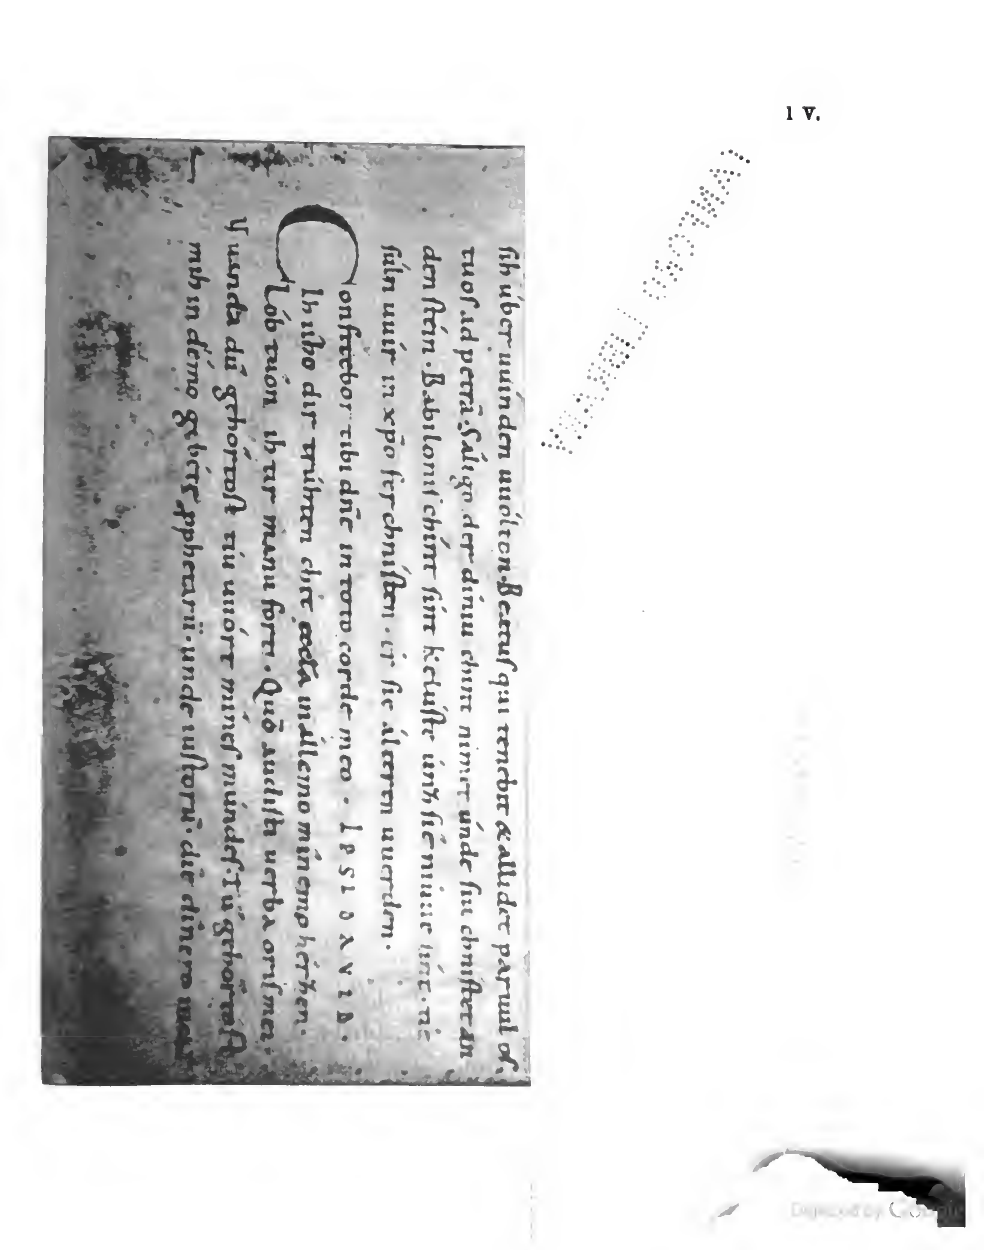 1 V.
sih úber uuínden uuólton. Beatus qui tenebit & allidet paruul os.
tuos ad petrā. Sálige der díniu chint nimet únde siu chnístet án
den stéin. Babilonis chint sint keluste únz sie niuue sint. tie
súln uuir in xp̄o fer chnísten. ér sie álteren uuerden.
Confitebor tibi dn̄e in toto corde meo. IPSI DAVID.
Ih iího dir trúhten chit acta in állemo mínemo hérzen.
Lób tuon ih tir manu forti. Quō audisti uerba oris mei.
Uuanda dū gehórtost tiu uuórt mínes múndes. Tū gehórtost
mih in démo gebéte ꝓphetarū. unde iustorū. die dinero
Digitized by Google